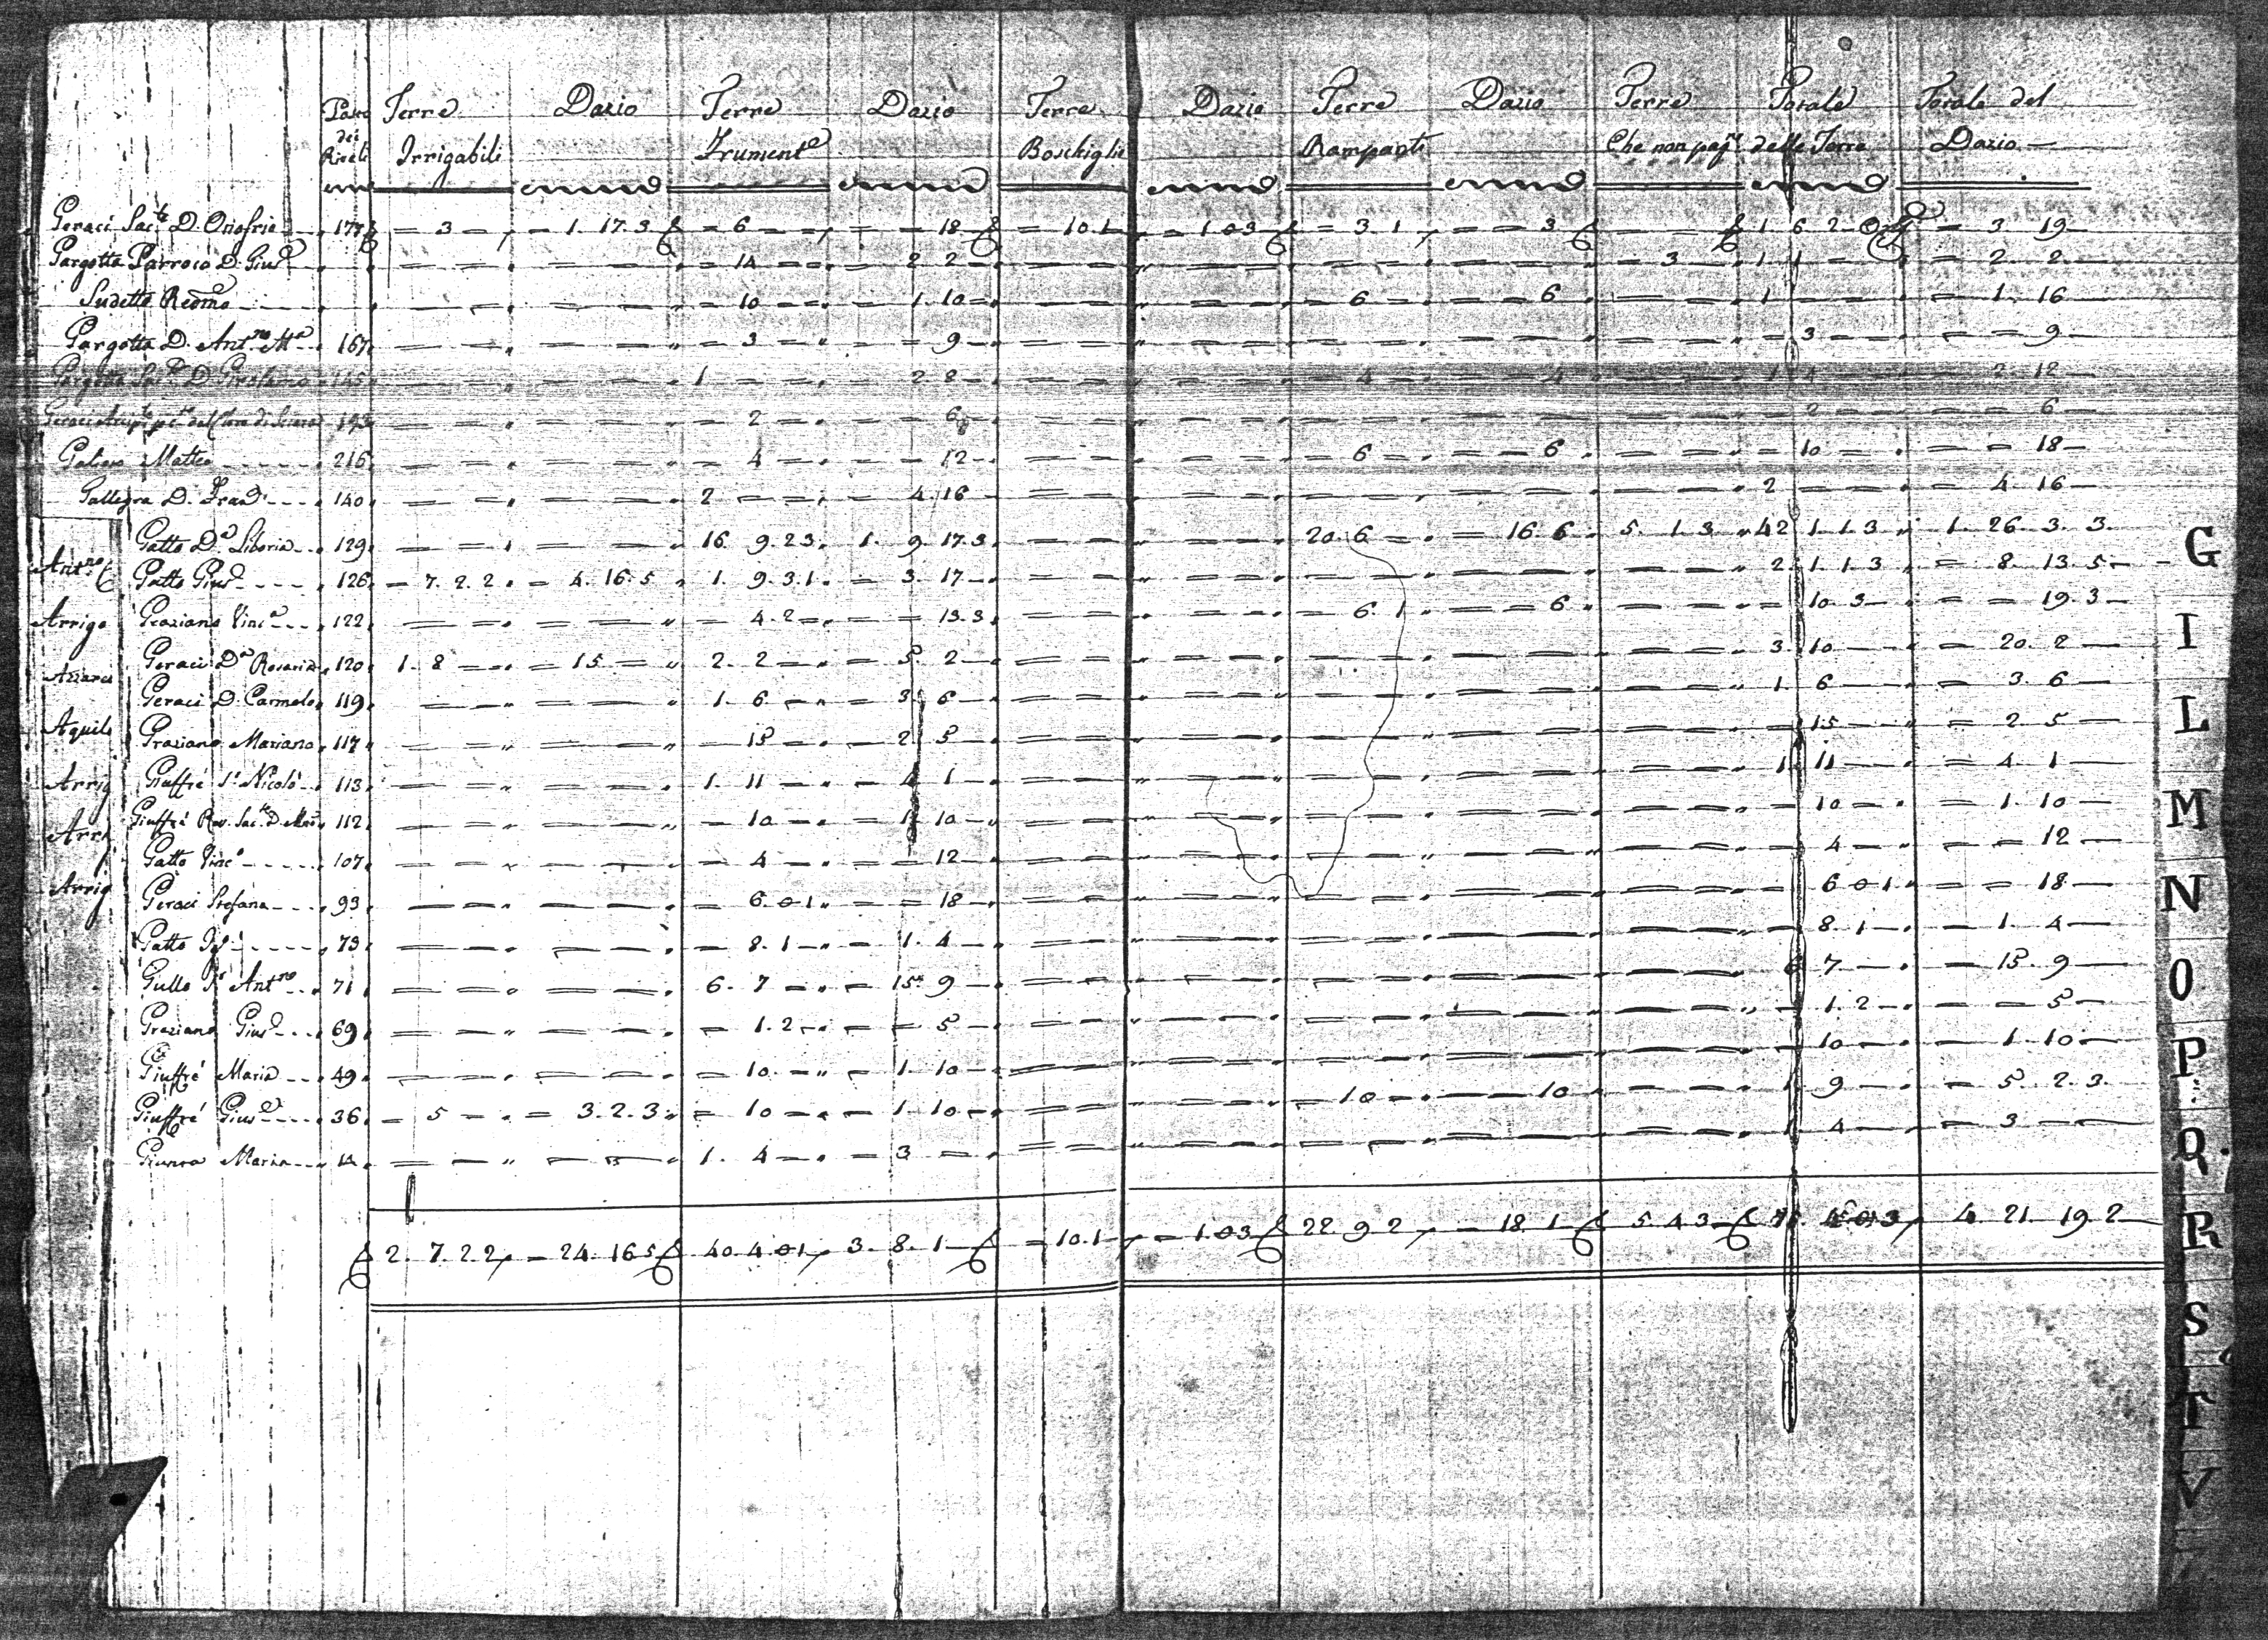 Passo Terre Dazio Terre Dazio Terre Dazio Terre Dazio Terre Totale Totale del
dei
Riveli Irrigabili Frument.e Boschiglie Rampanti Che non pag.no delle Terre Dazio
Geraci Sac.te D. Onofrio 177 = 3 - 1. 17. 3 = 6 = 18 = 10. 1 = 1. 0. 3 = 3. 1 = 3 1 6 2 = 3 19
Gargotta Parroco D. Gius.e = 14 = 2 2 = 3 1 1 = 2 2
Sudetto Redmo = 10 = 1. 10 = 6 = 6 1 = 1. 16
Gargotta D. Ant.no M.a 167 = 3 = 9 = 3 = 9
Gargotta Sac.te D. Girolamo 145 1 = 2 8 = 4 = 4 1 4 = 2 12
193 = 2 = 6 = 2 = 6
Matteo 216 = 4 = 12 = 6 = 6 = 10 = 18
Gallegra D. Fran.co 140 2 = 4. 16 2 = 4 16
Gatto D.a Liboria 129 16. 9. 2 3. 1. 9. 17. 3 20. 6 = 16. 6 5. 1. 3 42 1. 1. 3 1. 26. 3. 3
Ant.no Gatto Gius.e 126 = 7. 2. 2 = 4. 16. 5 1. 9. 3. 1 = 3. 17 2. 1. 1. 3 = 8. 13. 5 G
Arrigo Graziano Vinc.o 122 = 4. 2 = 13. 3 = 6. 1 = 6 = 10. 3 = 19. 3
Geraci D.a Rosaria 120 1. 8 = 15 2. 2 = 5. 2 3 10 = 20. 2 I
Geraci D. Carmelo 119 1. 6 = 3. 6 1. 6 = 3. 6
Aquila Graziano Mariano 117 = 15 = 2 5 = 15 = 2 5 L
Arrig Giuffré Nicolò 113 1. 11 = 4 1 1 11 = 4. 1
Arri Giuffré Rev. Sac.te D. 112 = 10 = 1 10 = 10 = 1. 10 M
Gatto Vinc.o 107 = 4 = 12 = 4 = 12
Arrig Geraci Stefana 93 = 6. 0 1 = 18 = 6 0 1 = 18 N
Gatto 73 = 8. 1 = 1. 4 = 8. 1 = 1. 4
Gullo Ant.no 71 6. 7 = 15. 9 6 7 = 15. 9 O
Graziano Gius.e 69 = 1. 2 = 5 = 1. 2 = 5
Giuffré Maria 49 = 10 = 1. 10 = 10 = 1. 10 P
Giuffré Gius.e 36 = 5 = 3. 2. 3 = 10 = 1. 10 = 10 = 10 1. 9 = 5. 2. 3
Maria 14 1. 4 = 3 1 4 = 3 Q
2. 7. 2 2 = 24. 16 5 40. 4 0 1 3. 8. 1 = 10. 1 = 1. 0 3 22 9 2 = 18 1 5 4 3 4. 21. 19. 2 R
S
T
V